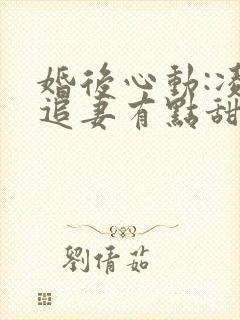 婚後心動:凌
追妻有點甜
劉倩茹